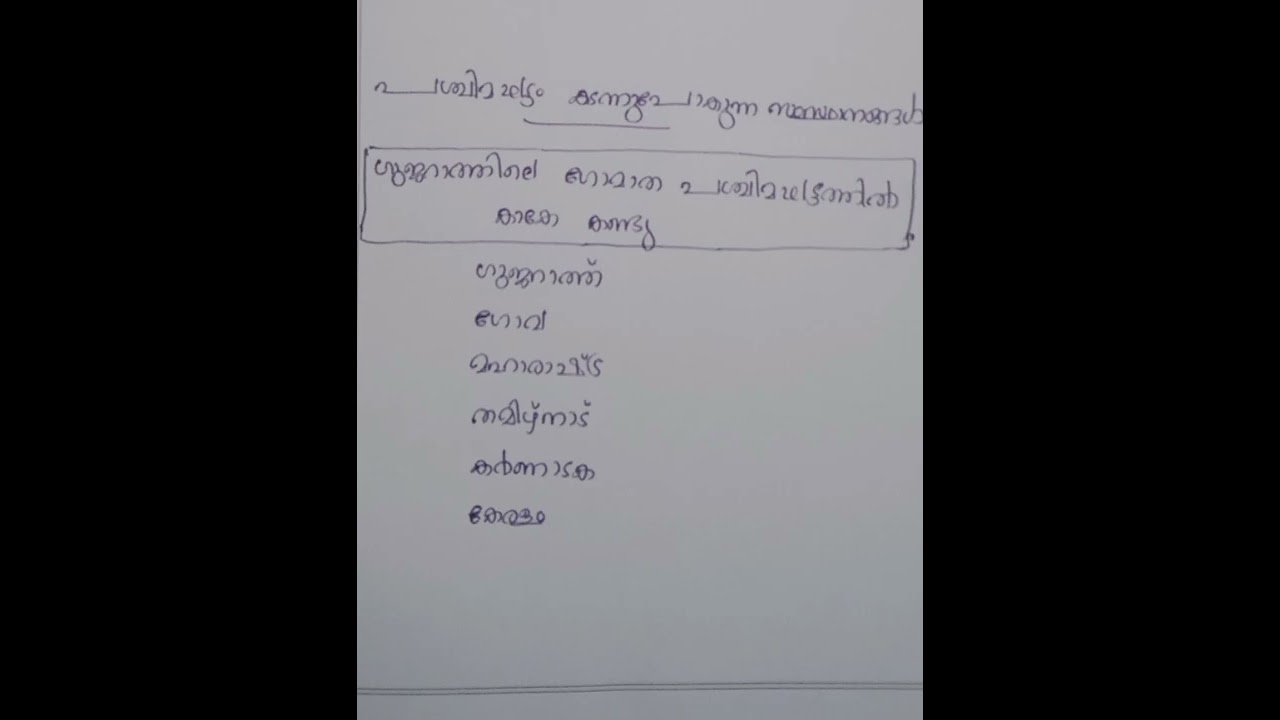 പശ്ചിമഘട്ടം കടന്നുപോകുന്ന സംസ്ഥാനങ്ങൾ
ഗുജറാത്തിലെ ഗോമാത പശ്ചിമഘട്ടത്തിൽ
കണ്ടു
ഗുജറാത്ത്
ഗോവ
മഹാരാഷ്ട്ര
തമിഴ്നാട്
കർണാടക
കേരളം